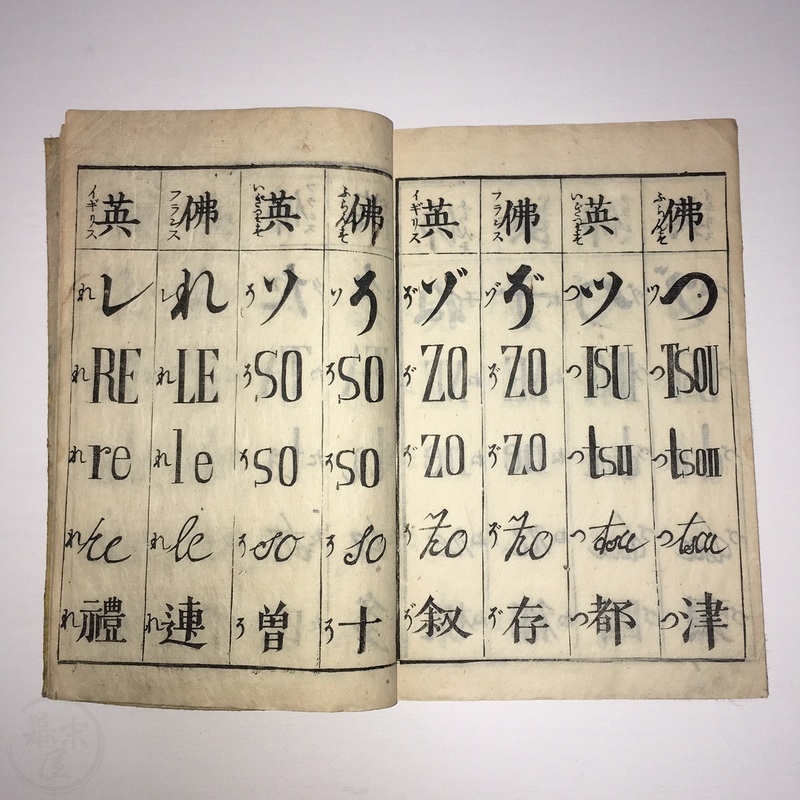 佛 ふらんす つ ツ TSOU つ tsou つ tsu つ 津 つ
英 いぎりす ツ つ TSU つ tsu つ tsu つ 都 つ
佛 フランス ぞ ゾ ZO ぞ ZO ぞ zo ぞ 存 ぞ
英 イギリス ゾ ぞ ZO ぞ ZO ぞ zo ぞ 叙 ぞ
佛 ふらんす そ ソ SO そ so そ so そ 十 そ
英 いぎりす ソ そ SO そ so そ so そ 曽 そ
佛 フランス れ レ LE れ le れ le れ 連 れ
英 イギリス レ れ RE れ re れ re れ 禮 れ
幕末屋